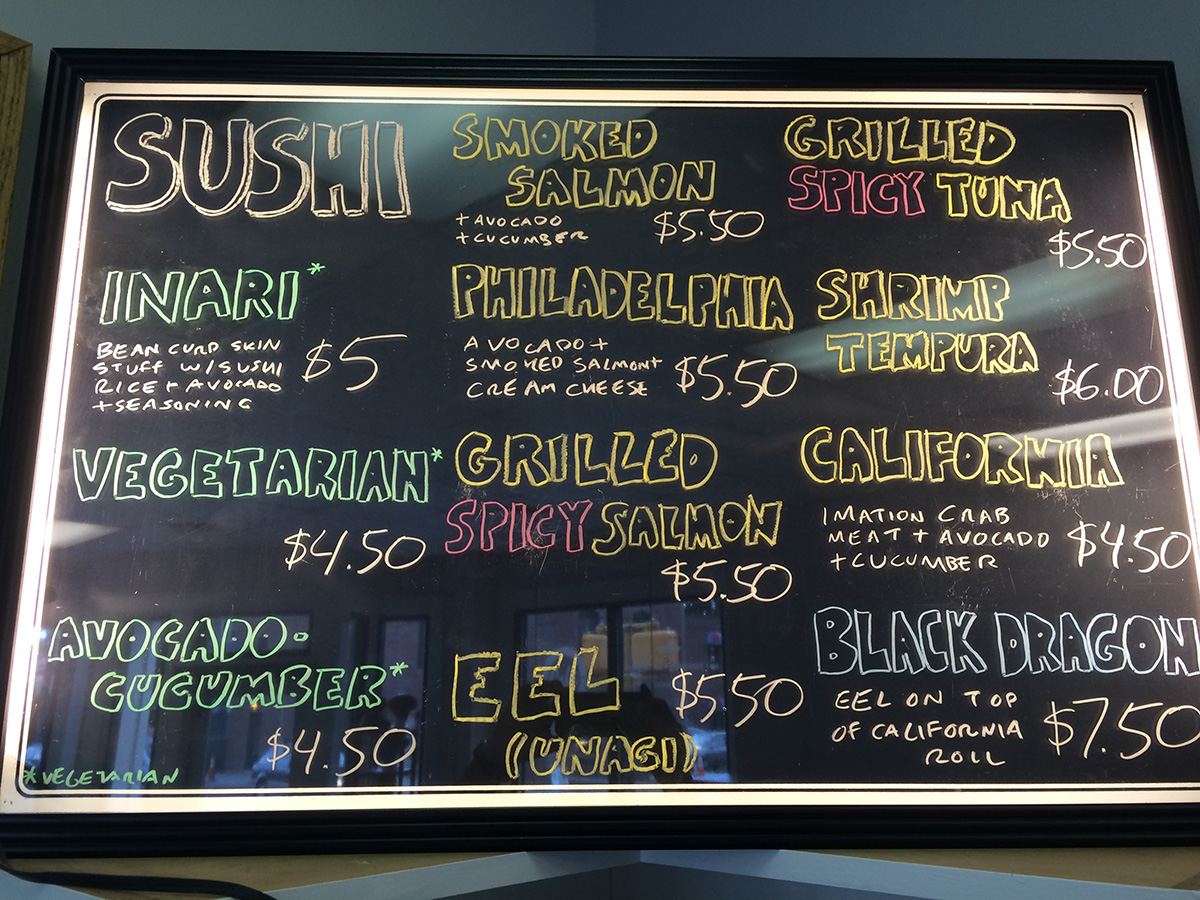 SUSHI
INARI*
BEAN CURD SKIN
STUFF W/SUSHI
RICE + AVOCADO
+SEASONING
$5
VEGETARIAN*
$4.50
AVOCADO-
CUCUMBER*
$4.50
*VEGETARIAN
SMOKED
SALMON
+ AVOCADO
+CUCUMBER
$5.50
PHILADELPHIA
AVOCADO +
SMOKED SALMON+
CREAM CHEESE
$5.50
GRILLED
SPICY SALMON
$5.50
EEL
(UNAGI)
$5.50
GRILLED
SPICY TUNA
$5.50
SHRIMP
TEMPURA
$6.00
CALIFORNIA
IMATION CRAB
MEAT + AVOCADO
+CUCUMBER
$4.50
BLACK DRAGON
EEL ON TOP
OF CALIFORNIA
ROLL
$7.50